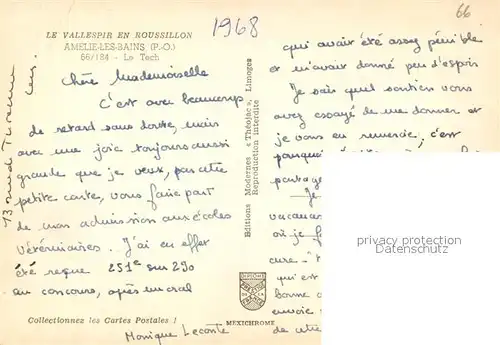 1968
66
LE VALLESPIR EN ROUSSILLON
AMELIE-LES-BAINS (P.-O.)
66/184 - Le Tech
Chère Mademoiselle
C'est avec beaucoup
de retard sans doute, mais
avec une joie toujours aussi
grande que je veux, par cette
petite carte, vous faire part
de mon admission aux écoles
Vétérinaires. J'ai en effet
été reçue 251e sur 290
au concours, après un oral
Collectionnez les Cartes Postales !
Monique Leconte
Editions Modernes « Théojac », Limoges
Reproduction interdite
MEXICHROME
qui avait été assez pénible
et m'avait donné peu d'espoir
Je sais quel soutien vous
avez essayé de me donner et
je vous en remercie, c'est
pourquoi
partage
Je
vacance
où je
cure -
qui est
bonne
envoie
de cette
privacy protection
Datenschutz